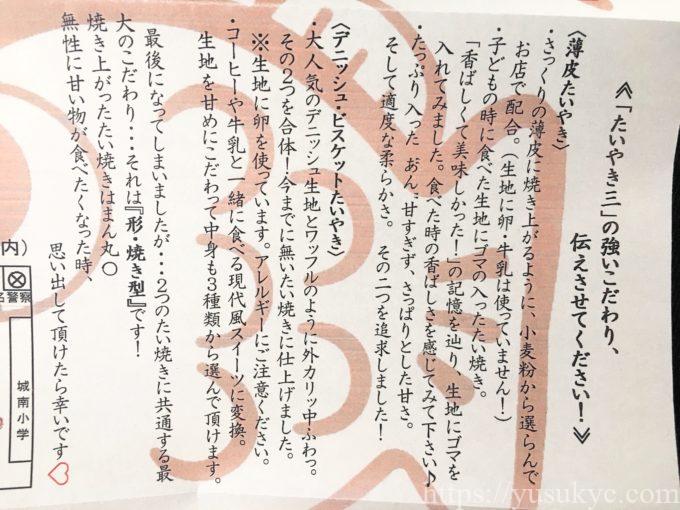 ≪「たいやき三」の強いこだわり、
伝えさせてください！≫
〈薄皮たいやき〉
・さっくりの薄皮に焼き上がるように、小麦粉から選らんで
お店で配合。(生地に卵・牛乳は使っていません！)
・子どもの時に食べた生地にゴマの入ったたい焼き。
「香ばしくて美味しかった！」の記憶を辿り、生地にゴマを
入れてみました。食べた時の香ばしさを感じてみて下さい♪
・たっぷり入った あん。甘すぎず、さっぱりとした甘さ。
そして適度な柔らかさ。 その二つを追求しました！
〈デニッシュ・ビスケットたいやき〉
・大人気のデニッシュ生地とワッフルのように外カリッ中ふわっ。
その2つを合体！今までに無いたい焼きに仕上げました。
※生地に卵を使っています。アレルギーにご注意ください。
・コーヒーや牛乳と一緒に食べる現代風スイーツに変換。
生地を甘めにこだわって中身も3種類から選んで頂けます。
最後になってしまいましたが・・・2つのたい焼きに共通する最
大のこだわり・・・それは『形・焼き型』です！
焼き上がったたい焼きはまん丸〇
無性に甘い物が食べたくなった時、
思い出して頂けたら幸いです♡
内)
名警察
城南小学
https://yusukyc.com/